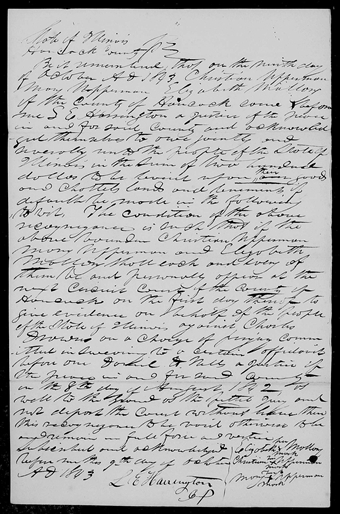 State of Illinois
Hancock County
Be it remembered that on the ninth day
of October A D 1893 Christian Wipperman
Mary Wipperman Elizabeth Mallory
of the County of Hancock came before
me L E Harrington a justice of the peace
in and for said County and acknowledged
themselves to owe jointly and
severally unto the people of the State of
Illinois in the sum of two hundred
dollars to be levied upon their goods
and chattels lands and tenements if
default be made in the following
to wit, The condition of the above
recognizance is such that if the
above bounden Christian Wipperman
Mary Wipperman and Elizabeth
Mallory shall each and every of
them be and personally appear at the
next Circuit Court of the County of
Hancock on the first day thereof to
give evidence on behalf of the people
of the State of Illinois against Charles
on a charge of
in swearing to a certain affidavit
before a justice of
the peace in and for said County
on the 8th day of August 1892 as
well to the Grand as the petit jury and
not depart the Court without leave then
this recognizance to be void otherwise to be
and remain in full force and virtue
Subscribed and acknowledged
before me this 9th day of October
A D 1893
L E Harrington
J P
her
Elizabeth Mallory
mark
Christian Wipperman
mark
Mary Wipperman
mark